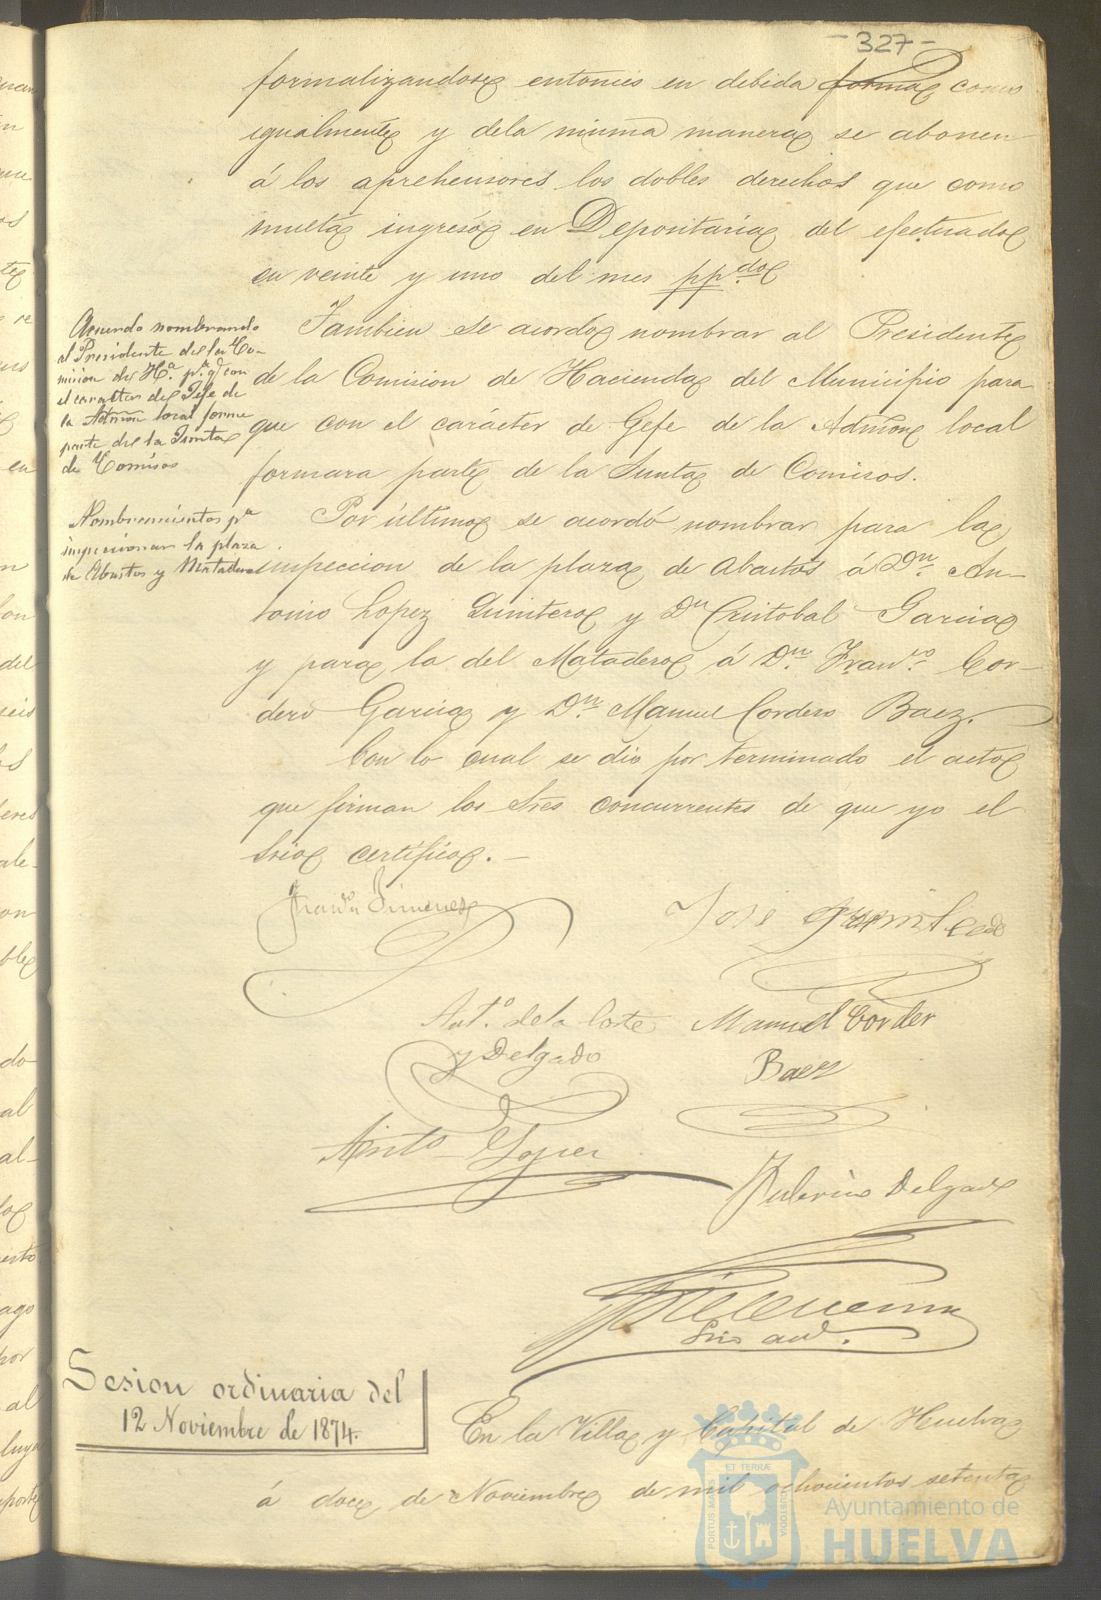 -327-
formalizandose entonces en debida forma como
igualmente y dela misma manera se abonen
á los aprehensores los dobles derechos que como
multa ingresó en Depositaria del efectuado
en veinte y uno del mes pp.do
Acuerdo nombrando
al Presidente de la Co-
mision de H.a p.a q.e con
el caracter de Gefe de
la Admon local forme
parte de la Junta
de Comisos
Tambien se acordo nombrar al Presidente
de la Comision de Hacienda del Municipio para
que con el carácter de Gefe de la Admon local
formara parte de la Junta de Comisos.
Nombramientos p.a
inspeccionar la plaza
de Abastos y Matadero
Por último se acordó nombrar para la
inspeccion de la plaza de Abastos á D.n An-
tonio Lopez Quintero y D.n Cristobal Garcia
y para la del Matadero á D.n Fran.co Cor-
dero Garcia y D.n Manuel Cordero Baez.
Con lo cual se dio por terminado el acto
que firman los Sres concurrentes de que yo el
Srio certifico.-
Jimenez
José
Ant.o de la Corte
y Delgado
Manuel Corder
Baez
Anto Lopez
Federico Delgado
Srio acc.
Sesion ordinaria del
12 Noviembre de 1874.
En la Villa y Capital de Huelva
á doce de Noviembre de mil ochocientos setenta
ET TERRÆ
PORTUS MARIS
CUSTODIA
Ayuntamiento de
HUELVA